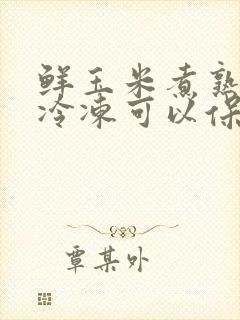 鲜玉米煮熟
冷冻可以保
覃某外